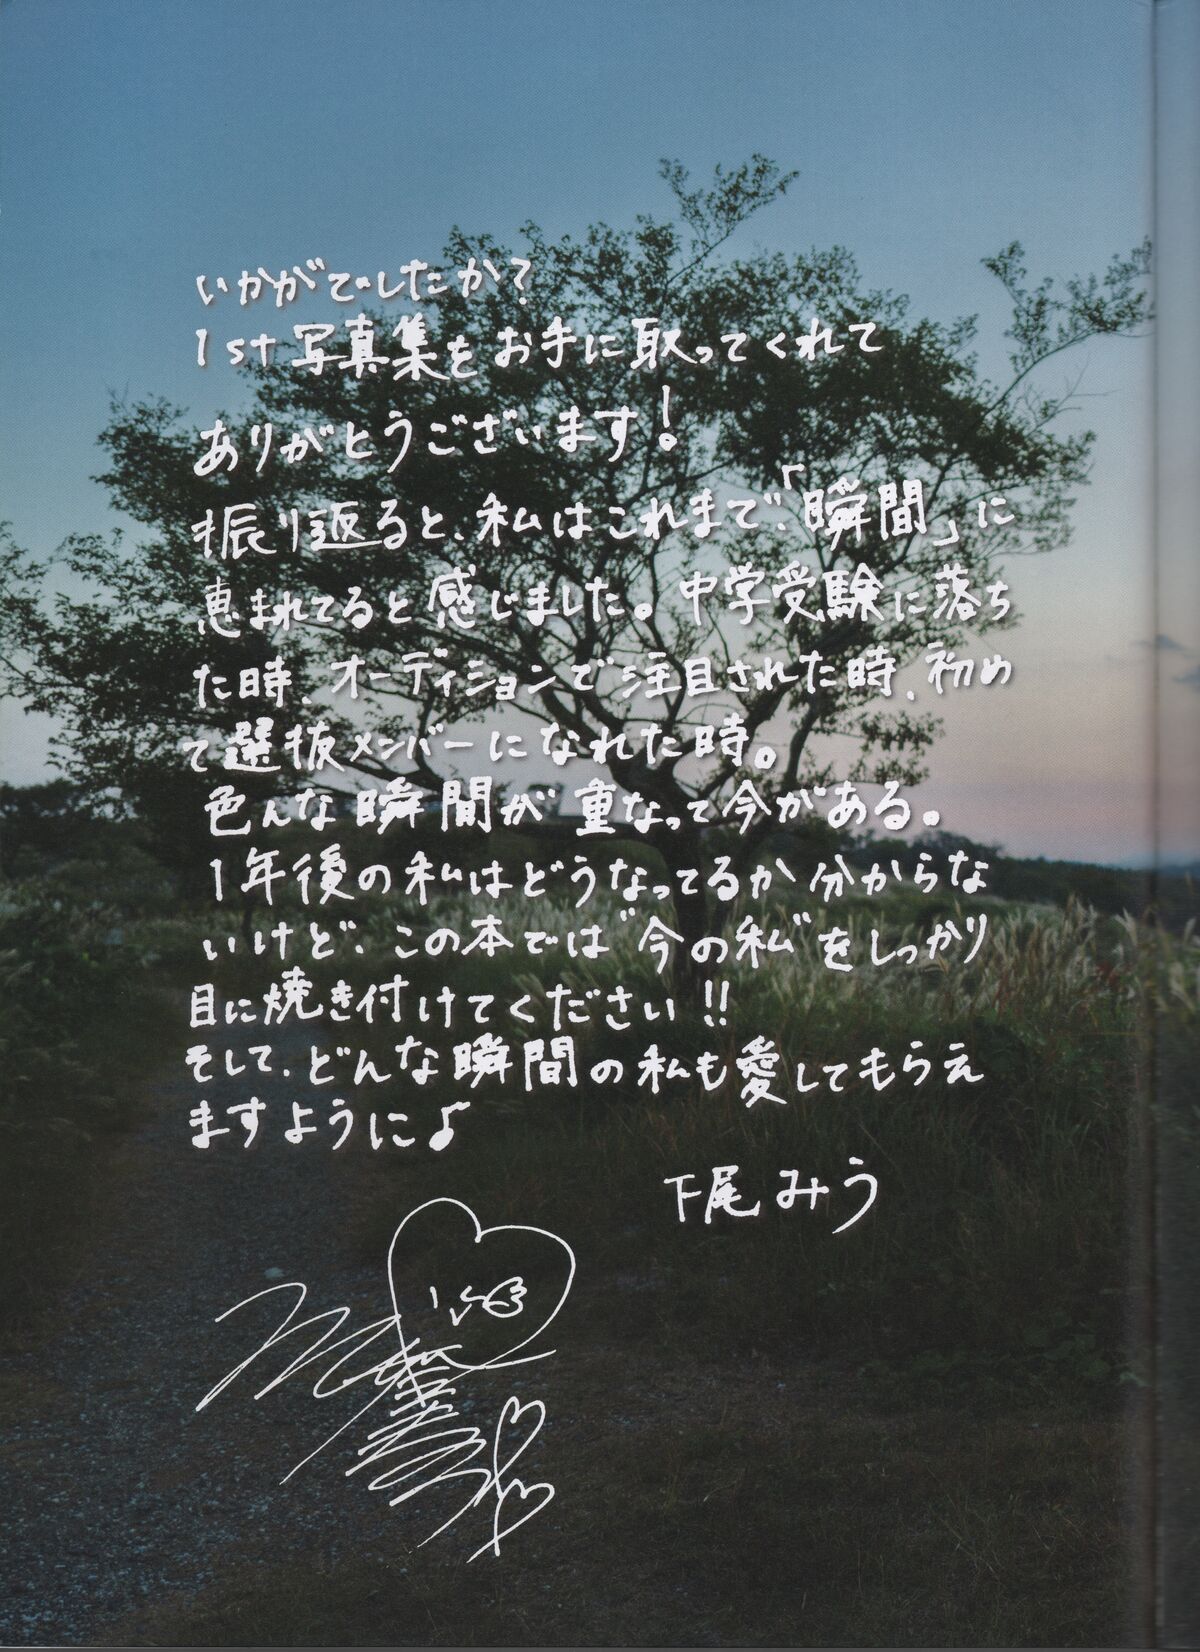 いかがでしたか？
1st写真集をお手に取ってくれて
ありがとうございます！
振り返ると、私はこれまで、「瞬間」に
恵まれてると感じました。中学受験に落ち
た時、オーディションで注目された時、初め
て選抜メンバーになれた時。
色んな瞬間が重なって今がある。
1年後の私はどうなってるか分からな
いけど、この本では“今の私”をしっかり
目に焼き付けてください!!
そして、どんな瞬間の私も愛してもらえ
ますように♪
下尾みう